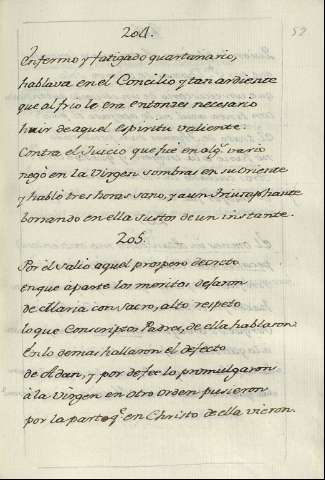 204.
52
Enfermo y fatigado quartanario,
hablava en el Concilio y tan ardiente
que al frio le era entonzes nezesario
huir de aquel espiritu valiente.
Contra el Juicio que fuè en alg.º vario
negò en la Virgen sombras en su Oriente
y hablò tres horas sano, y aun Triumphante
borrando en ella sustos de un instante.
205.
Por el salio aquel prospero decreto
en que aparte los meritos dejaron
de Maria con sacro, alto respeto
lo que Conscriptos Padres, de ella hablaron.
En lo demas hallaron el defecto
de Adan, y por de fee lo promulgaron
à la Virgen en otro orden pusieron
por la parte q.e en Christo de ella vieron.